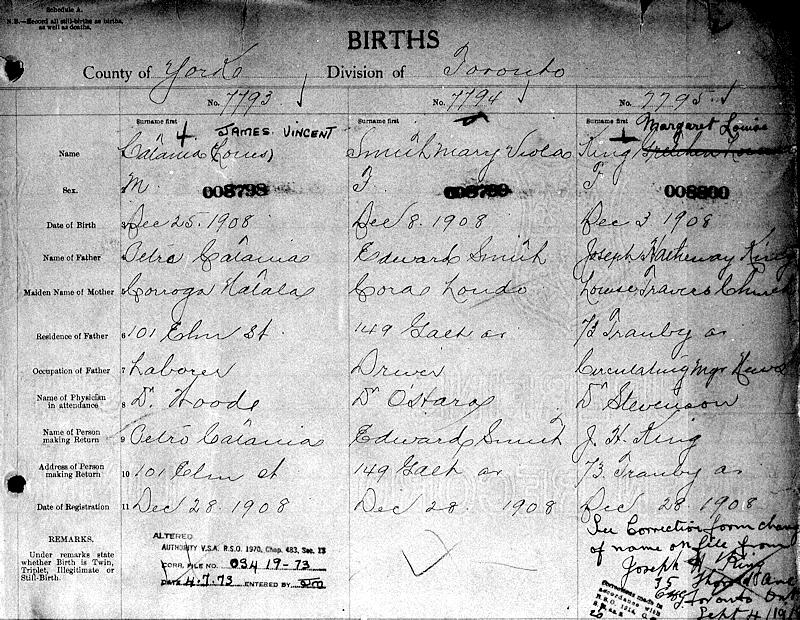 Schedule A.
N.B.—Record all still-births as births, as well as deaths.
BIRTHS
County of York Division of Toronto
No. 7793 No. 7794 No. 7795
Surname first Surname first Surname first
JAMES VINCENT Margaret Louise
Name Catania (Louis) Smith Mary Viola King
Sex. M F F
008798 008799 008800
Date of Birth 3 Dec 25. 1908 Dec 8. 1908 Dec 3 1908
Name of Father 4 Petro Catania Edward Smith Joseph Hatheway King
Maiden Name of Mother 5 Natala Cora Louise Travers Church
Residence of Father 6 101 Elm St 149 Galt av 73 Tranby av
Occupation of Father 7 Laborer Driver Circulating Mgr News
Name of Physician in attendance 8 Dr Woods Dr O'Hara Dr Stevenson
Name of Person making Return 9 Petro Catania Edward Smith J. H. King
Address of Person making Return 10 101 Elm st 149 Galt av 73. Tranby av
Date of Registration 11 Dec 28. 1908 Dec 28. 1908 Dec 28. 1908
REMARKS.
Under remarks state whether Birth is Twin, Triplet, Illegitimate or Still-Birth.
ALTERED
AUTHORITY V.S.A. R.S.O. 1970, Chap. 483, Sec. 13
CORR. FILE NO. 03419-73
DATE 4.7.73 ENTERED BY
See Correction form change
of name on file from
Joseph H King
75
Toronto Ont
Sept 4/19